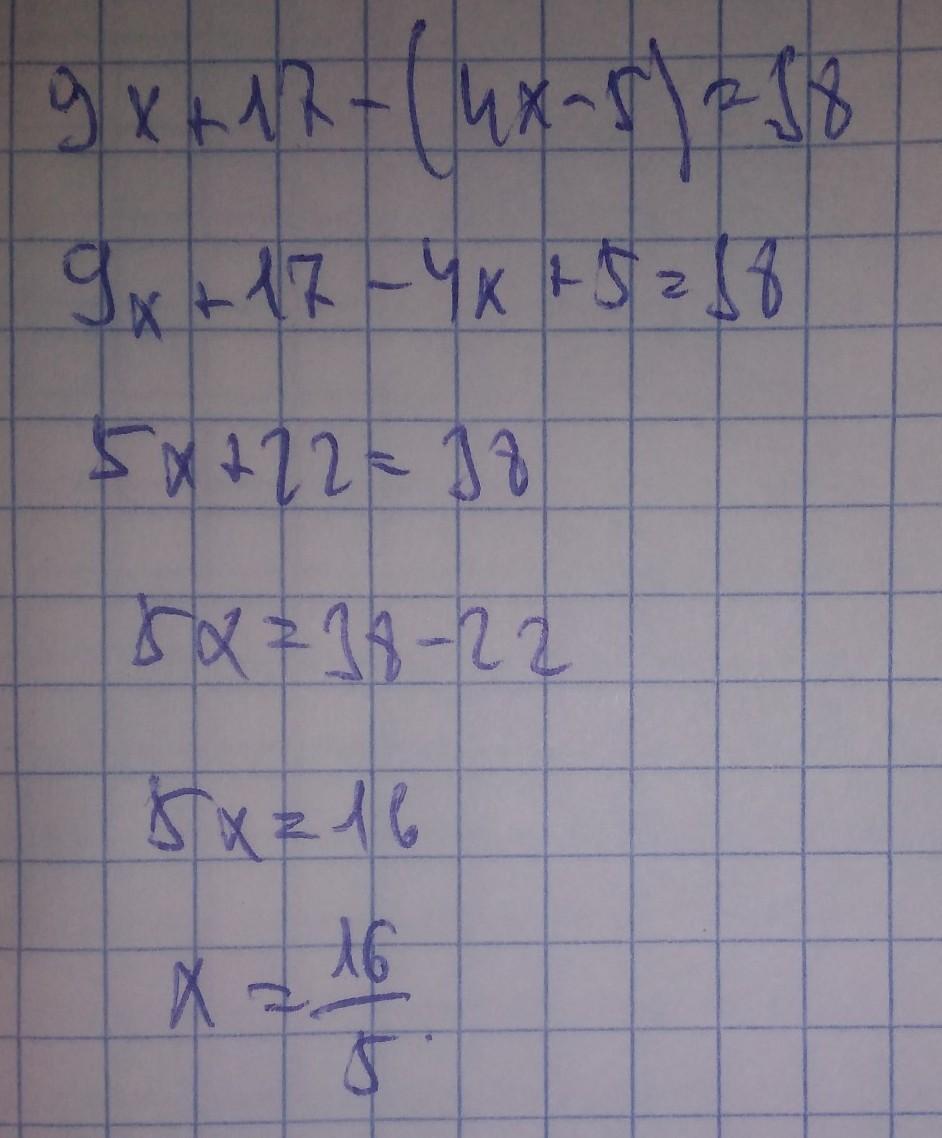 9x+17-(4x-5)=38
9x+17-4x+5=38
5x+22=38
5x=38-22
5x=16
x=16/5